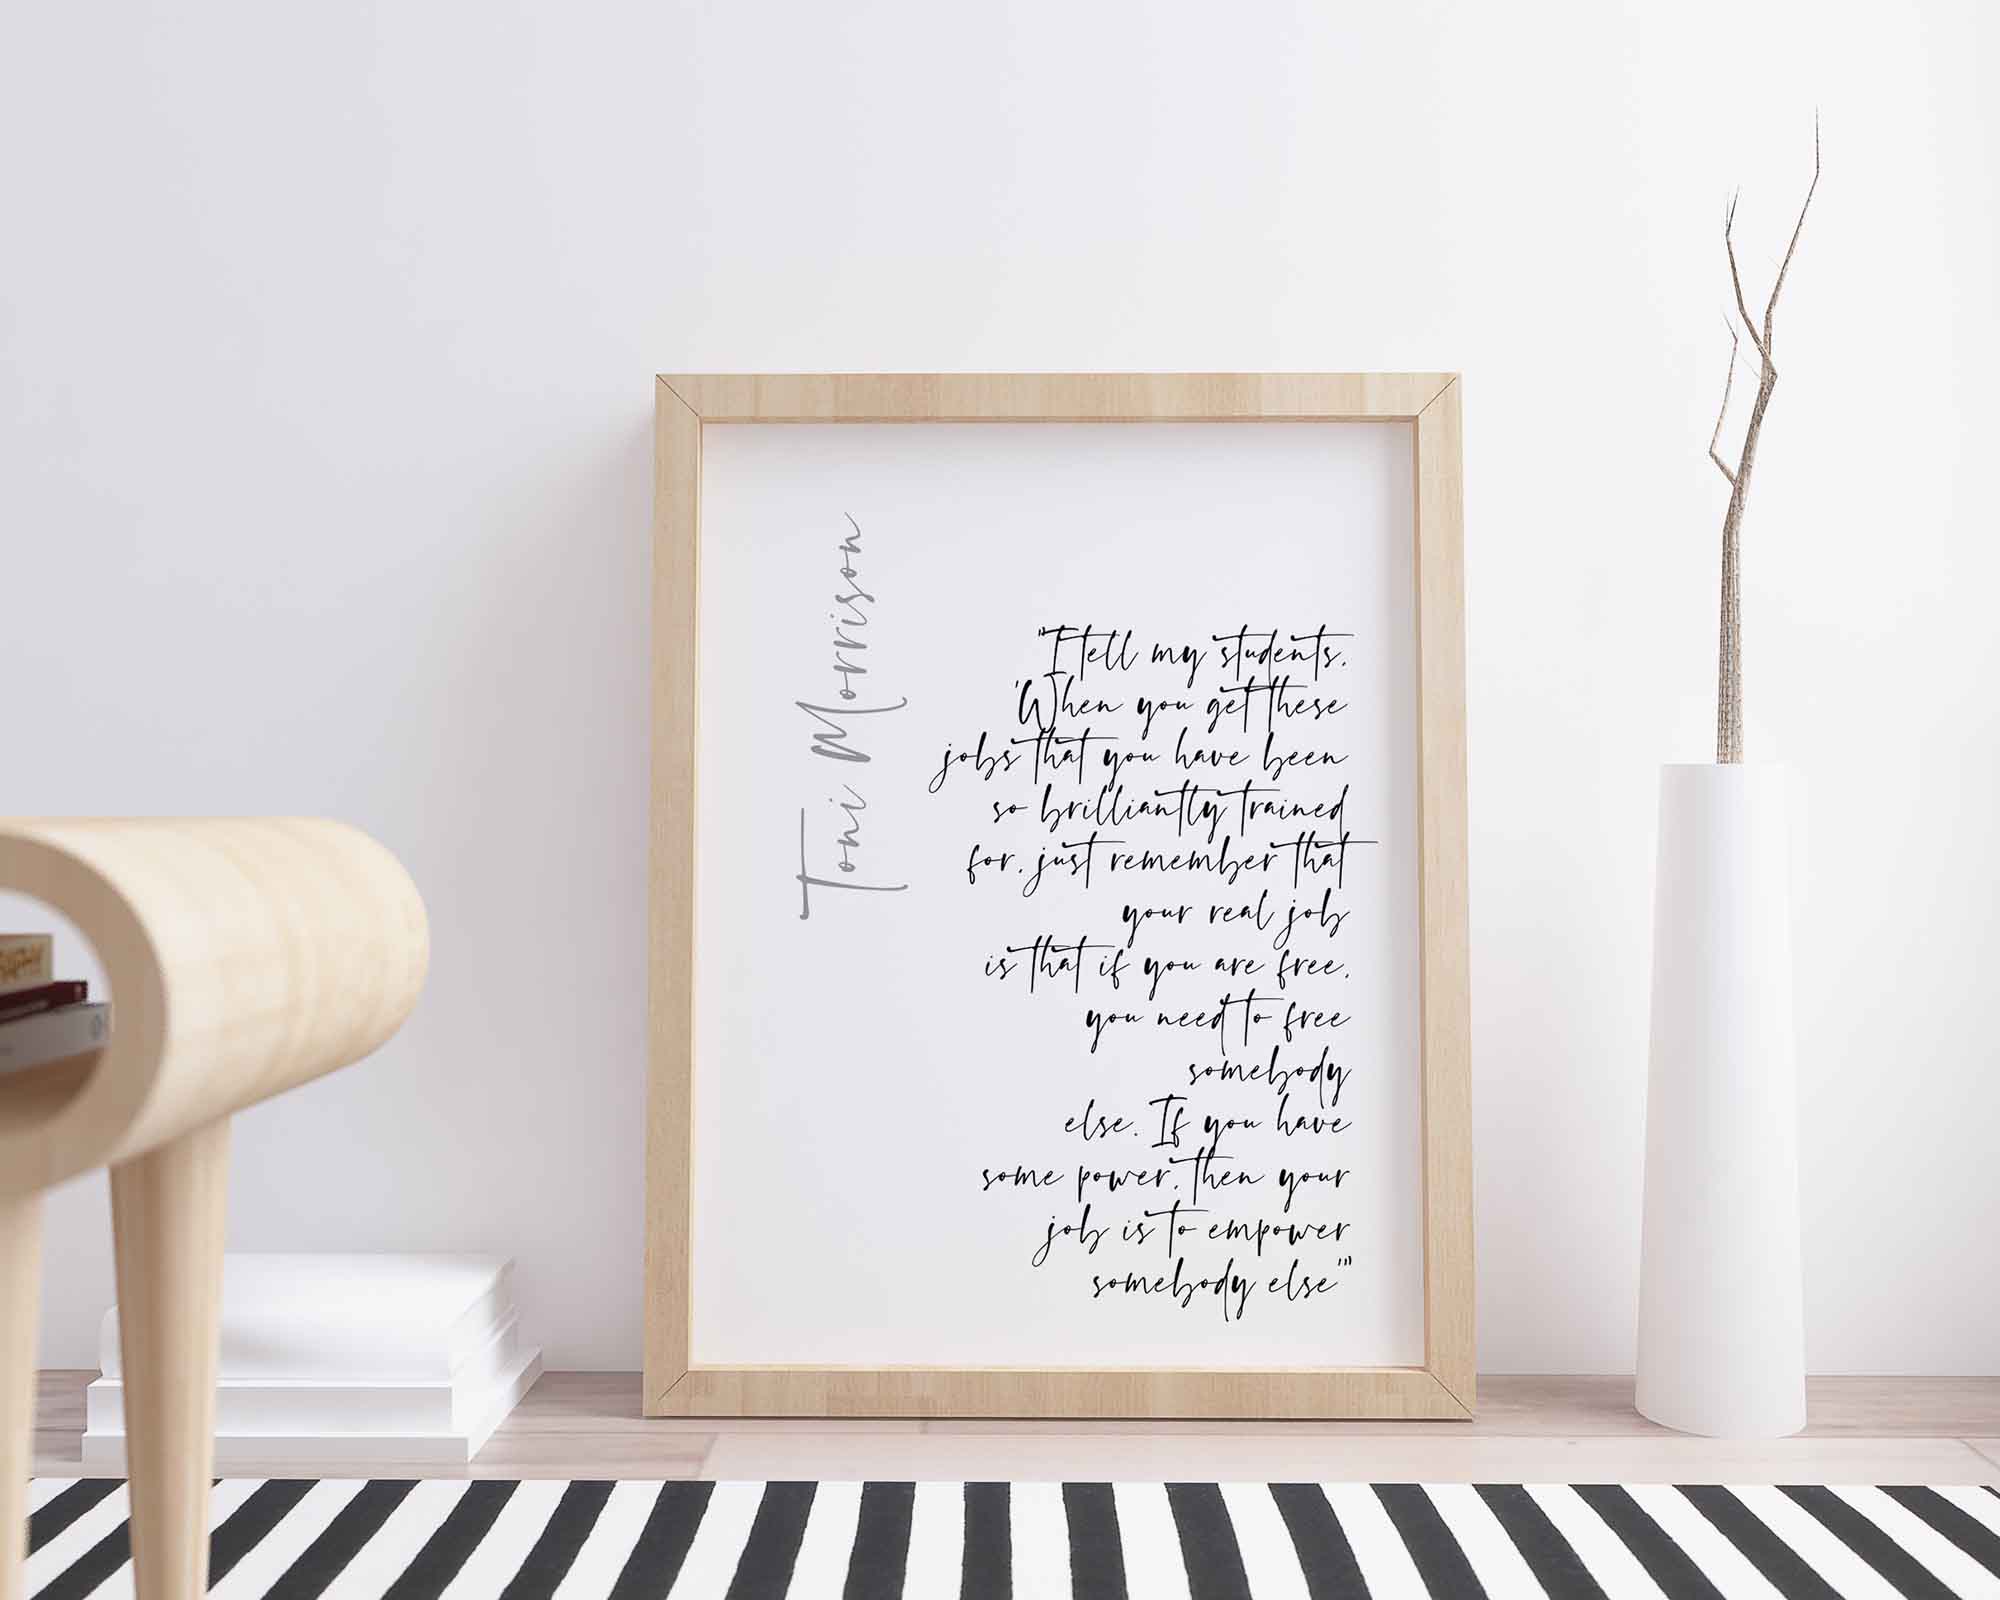 Toni Morrison
"I tell my students,
'When you get these
jobs that you have been
so brilliantly trained
for, just remember that
your real job
is that if you are free,
you need to free
somebody
else. If you have
some power, then your
job is to empower
somebody else'"